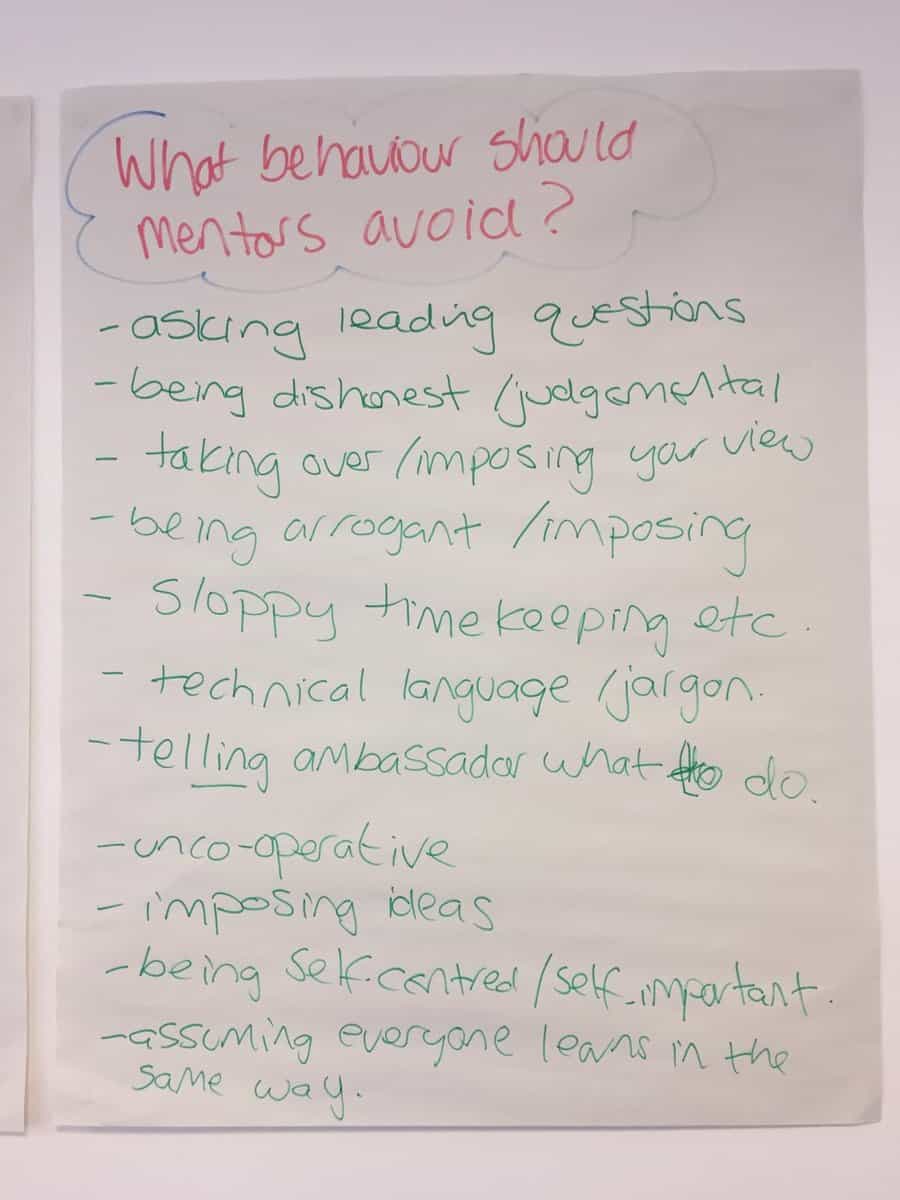 What behaviour should
mentors avoid?
- asking leading questions
- being dishonest /judgemental
- taking over /imposing your view
- being arrogant /imposing
- Sloppy timekeeping etc.
- technical language /jargon.
- telling ambassador what to do.
- unco-operative
- imposing ideas
- being self-centred /self-important.
- assuming everyone learns in the
same way.